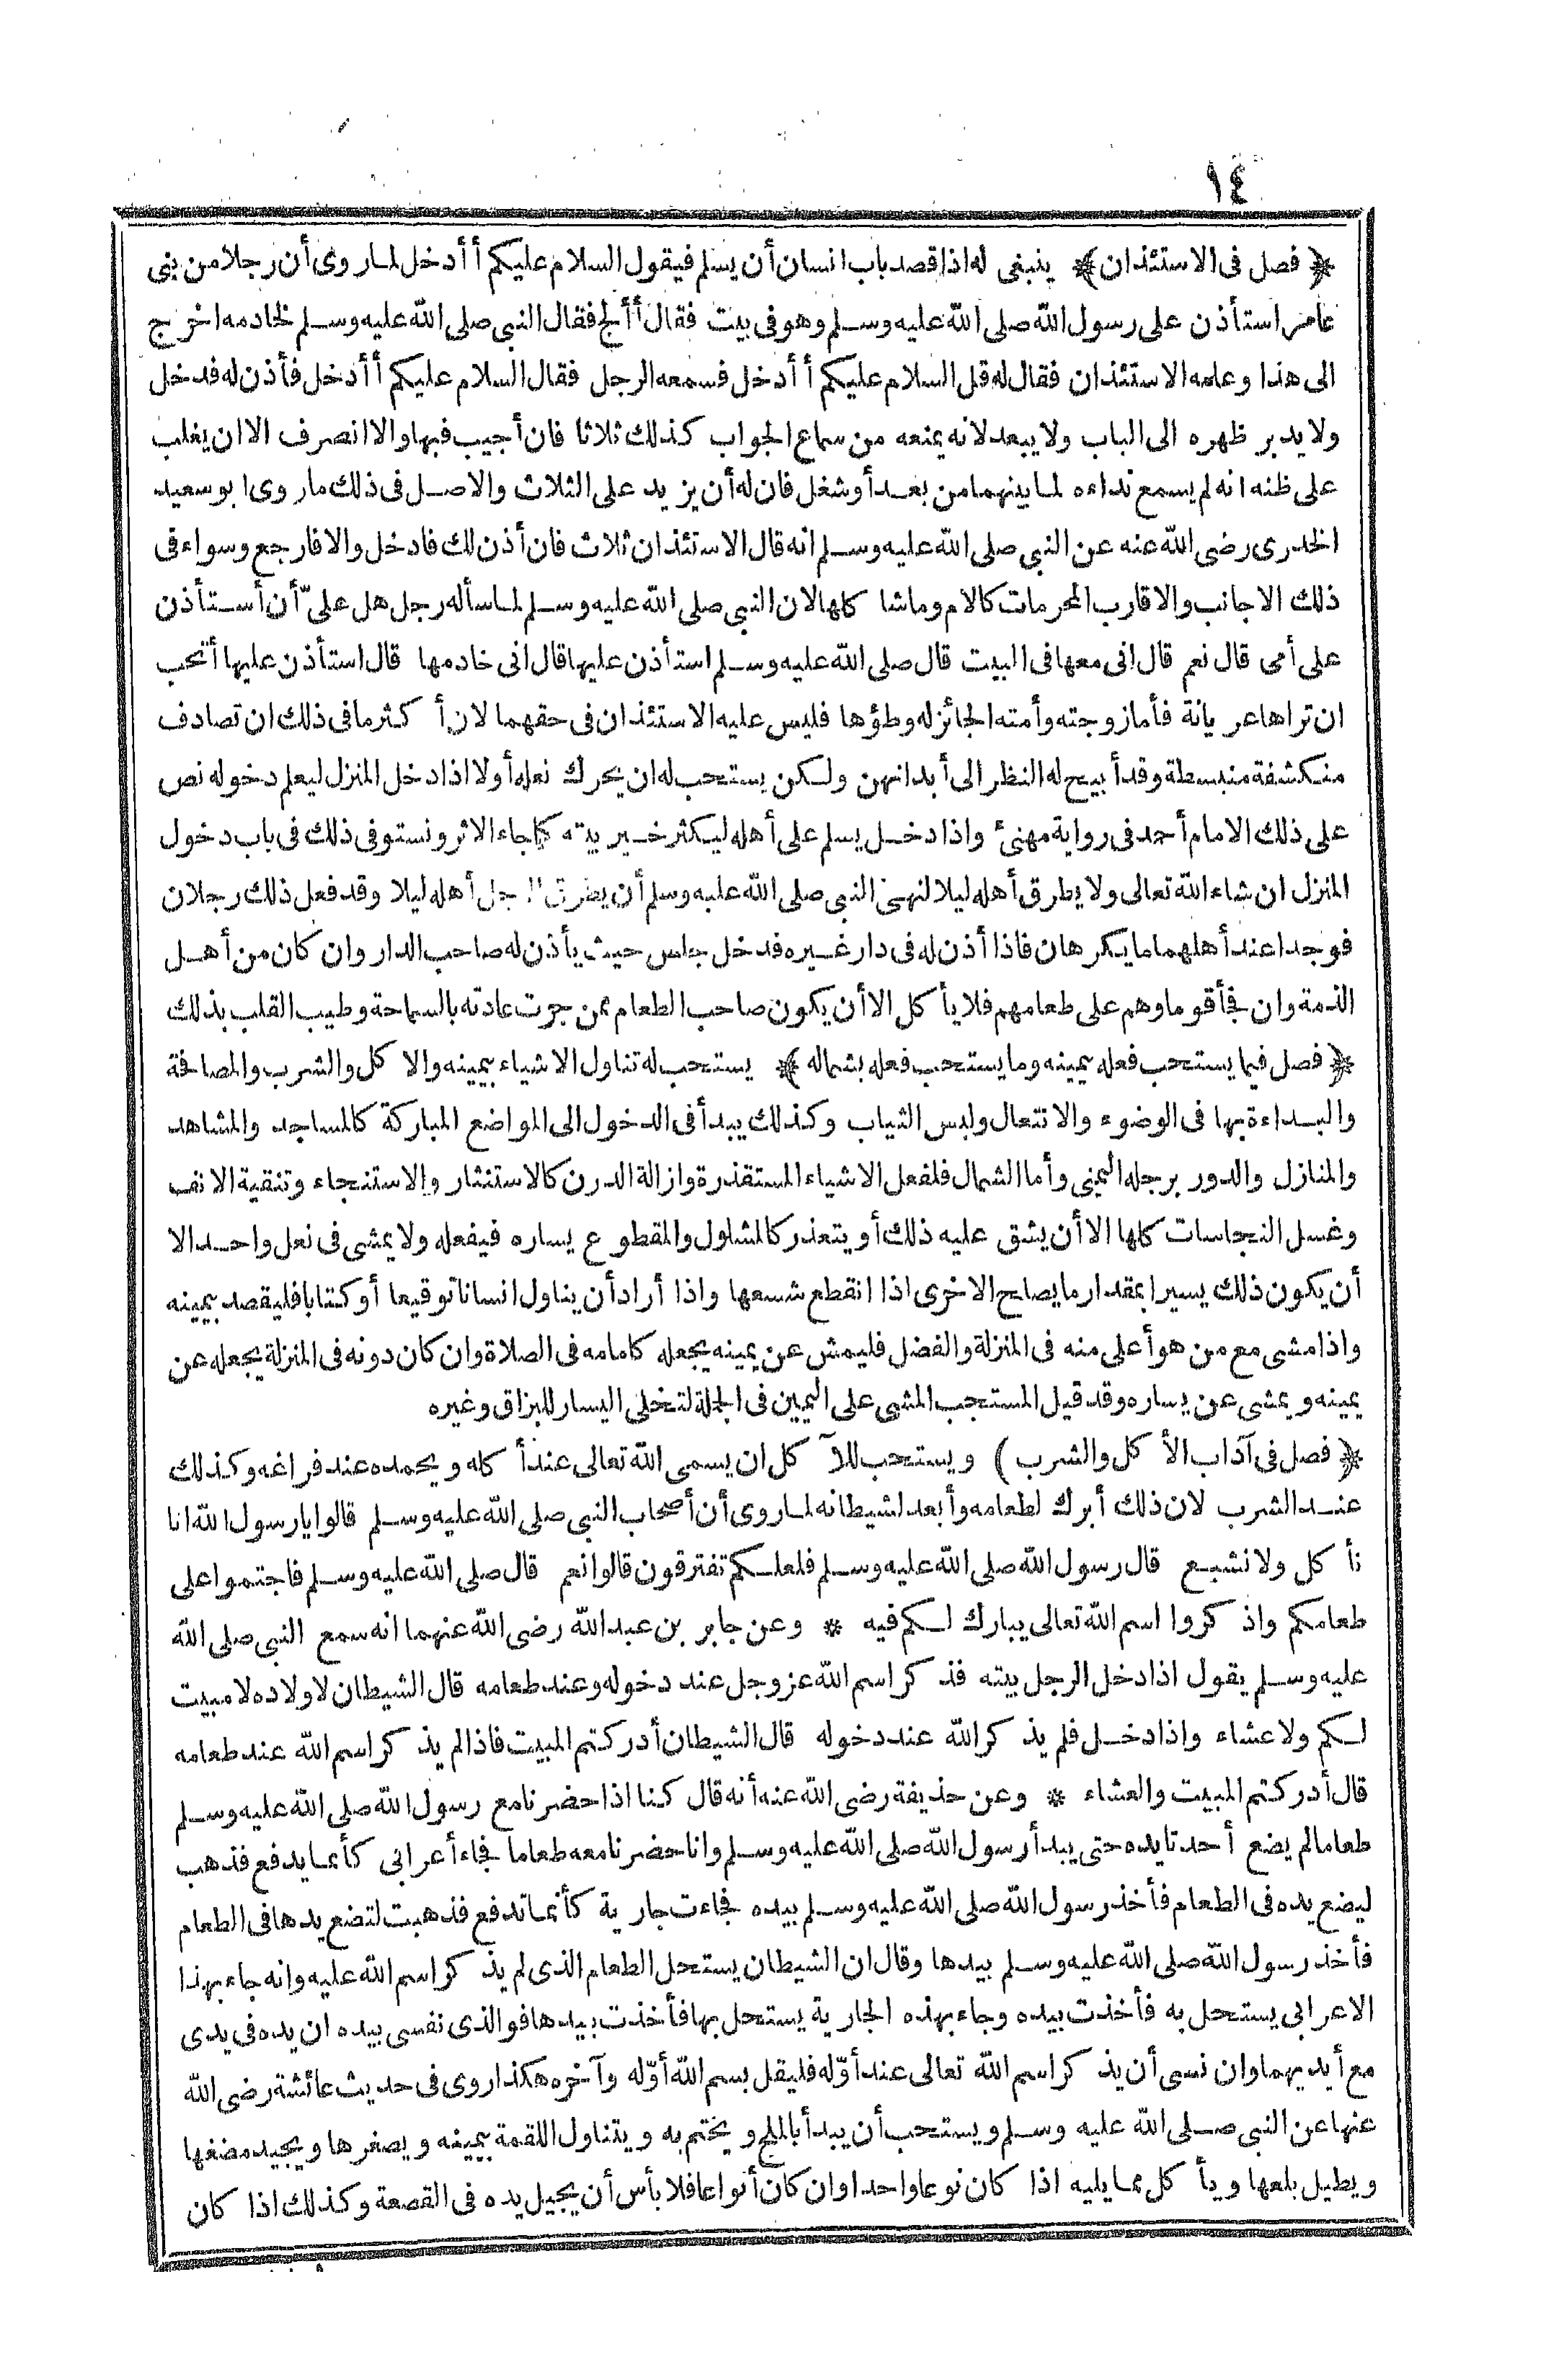 ١٤
﴿ فصل فى الاستئذان ﴾ ينبغى له اذا قصد باب انسان أن يسلم فيقول السلام عليكم أأدخل لما روى أن رجلا من بنى
عامر استأذن على رسول الله صلى الله عليه وسلم وهو فى بيت فقال أألج فقال النبى صلى الله عليه وسلم لخادمه اخرج
الى هذا وعلمه الاستئذان فقال له قل السلام عليكم أأدخل فسمعه الرجل فقال السلام عليكم أأدخل فأذن له فدخل
ولا يدبر ظهره الى الباب ولا يبعد لانه يمنعه من سماع الجواب كذلك ثلاثا فان أجيب فبها والا انصرف الا ان يغلب
على ظنه انه لم يسمع نداءه لما بينهما من بعد أو شغل فان له أن يزيد على الثلاث والاصل فى ذلك ما روى ابو سعيد
الخدرى رضى الله عنه عن النبى صلى الله عليه وسلم انه قال الاستئذان ثلاث فان أذن لك فادخل والا فارجع وسواء فى
ذلك الاجانب والاقارب المحرمات كالام وماشا كلها لان النبى صلى الله عليه وسلم لما سأله رجل هل علىّ أن أستأذن
على أمى قال نعم قال انى معها فى البيت قال صلى الله عليه وسلم استأذن عليها قال انى خادمها قال استأذن عليها أتحب
ان تراها عريانة فأما زوجته وأمته الجائز له وطؤها فليس عليه الاستئذان فى حقهما لان أكثر ما فى ذلك ان تصادف
منكشفة منبسطة وقد أبيح له النظر الى أبدانهن ولكن يستحب له ان يحرك نعله أولا اذا دخل المنزل ليعلم دخوله نص
على ذلك الامام أحمد فى رواية مهنئ واذا دخل يسلم على أهله ليكثر خير بيته كما جاء الاثر ونستوفى ذلك فى باب دخول
المنزل ان شاء الله تعالى ولا يطرق أهله ليلا لنهى النبى صلى الله عليه وسلم أن يطرق الرجل أهله ليلا وقد فعل ذلك رجلان
فوجدا عند أهلهما ما يكرهان فاذا أذن له فى دار غيره فدخل جلس حيث يأذن له صاحب الدار وان كان من أهل
الذمة وان فجأ قوما وهم على طعامهم فلا يأكل الا أن يكون صاحب الطعام ممن جرت عادته بالسماحة وطيب القلب بذلك
﴿ فصل فيما يستحب فعله بيمينه وما يستحب فعله بشماله ﴾ يستحب له تناول الاشياء بيمينه والاكل والشرب والمصافحة
والبداءة بها فى الوضوء والانتعال ولبس الثياب وكذلك يبدأ فى الدخول الى المواضع المباركة كالمساجد والمشاهد
والمنازل والدور برجله اليمنى وأما الشمال فلفعل الاشياء المستقذرة وازالة الدرن كالاستنثار والاستنجاء وتنقية الانف
وغسل النجاسات كلها الا أن يشق عليه ذلك أو يتعذر كالمشلول والمقطوع يساره فيفعله ولا يمشى فى نعل واحد الا
أن يكون ذلك يسيرا بمقدار ما يصلح الاخرى اذا انقطع شسعها واذا أراد أن يناول انسانا توقيعا أو كتابا فليقصد بيمينه
واذا مشى مع من هو أعلى منه فى المنزلة والفضل فليمش عن يمينه يجعله كامامه فى الصلاة وان كان دونه فى المنزلة يجعله عن
يمينه ويمشى عن يساره وقد قيل المستحب المشى على اليمين فى الجملة لتخلى اليسار للبزاق وغيره
﴿ فصل فى آداب الأكل والشرب ﴾ ويستحب للآكل ان يسمى الله تعالى عند أكله ويحمده عند فراغه وكذلك
عند الشرب لان ذلك أبرك لطعامه وأبعد لشيطانه لما روى أن أصحاب النبى صلى الله عليه وسلم قالوا يا رسول الله انا
نأكل ولا نشبع قال رسول الله صلى الله عليه وسلم فلعلكم تفترقون قالوا نعم قال صلى الله عليه وسلم فاجتمعوا على
طعامكم واذكروا اسم الله تعالى يبارك لكم فيه * وعن جابر بن عبد الله رضى الله عنهما انه سمع النبى صلى الله
عليه وسلم يقول اذا دخل الرجل بيته فذكر اسم الله عز وجل عند دخوله وعند طعامه قال الشيطان لاولاده لا مبيت
لكم ولا عشاء واذا دخل فلم يذكر الله عند دخوله قال الشيطان أدركتم المبيت فاذا لم يذكر اسم الله عند طعامه
قال أدركتم المبيت والعشاء * وعن حذيفة رضى الله عنه أنه قال كنا اذا حضرنا مع رسول الله صلى الله عليه وسلم
طعاما لم يضع أحدنا يده حتى يبدأ رسول الله صلى الله عليه وسلم وانا حضرنا معه طعاما فجاء أعرابى كأنما يدفع فذهب
ليضع يده فى الطعام فأخذ رسول الله صلى الله عليه وسلم بيده فجاءت جارية كأنما تدفع فذهبت لتضع يدها فى الطعام
فأخذ رسول الله صلى الله عليه وسلم بيدها وقال ان الشيطان يستحل الطعام الذى لم يذكر اسم الله عليه وانه جاء بهذا
الاعرابى يستحل به فأخذت بيده وجاء بهذه الجارية يستحل بها فأخذت بيدها فوالذى نفسى بيده ان يده فى يدى
مع أيديهما وان نسى أن يذكر اسم الله تعالى عند أوّله فليقل بسم الله أوّله وآخره هكذا روى فى حديث عائشة رضى الله
عنها عن النبى صلى الله عليه وسلم ويستحب أن يبدأ بالملح ويختم به ويتناول اللقمة بيمينه ويصغرها ويجيد مضغها
ويطيل بلعها ويأكل مما يليه اذا كان نوعا واحدا وان كان أنواعا فلا بأس أن يجيل يده فى القصعة وكذلك اذا كان